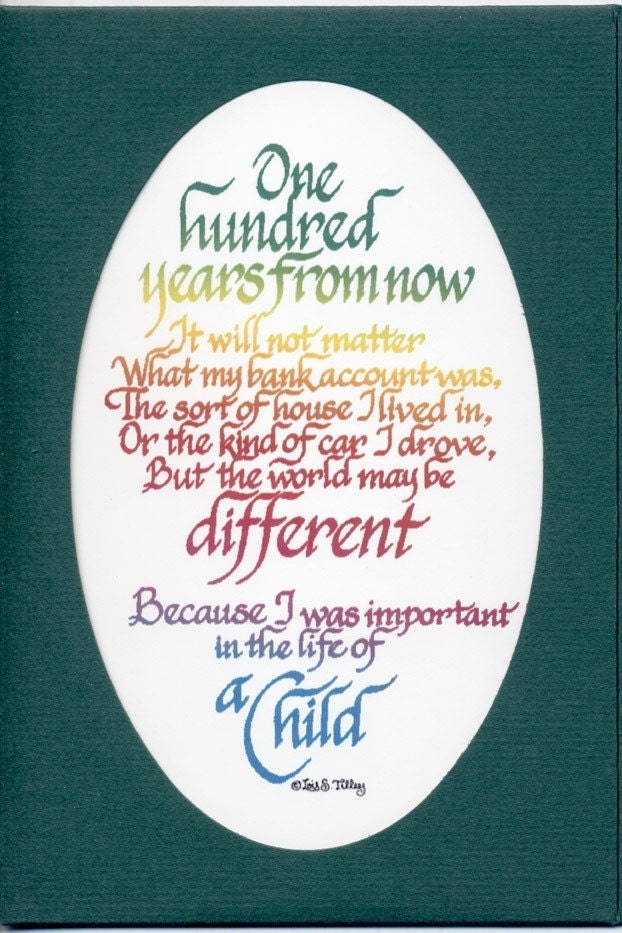 One
hundred
years from now
It will not matter
What my bank account was,
The sort of house I lived in,
Or the kind of car I drove,
But the world may be
different
Because I was important
in the life of
a Child
© Lois S. Tilley